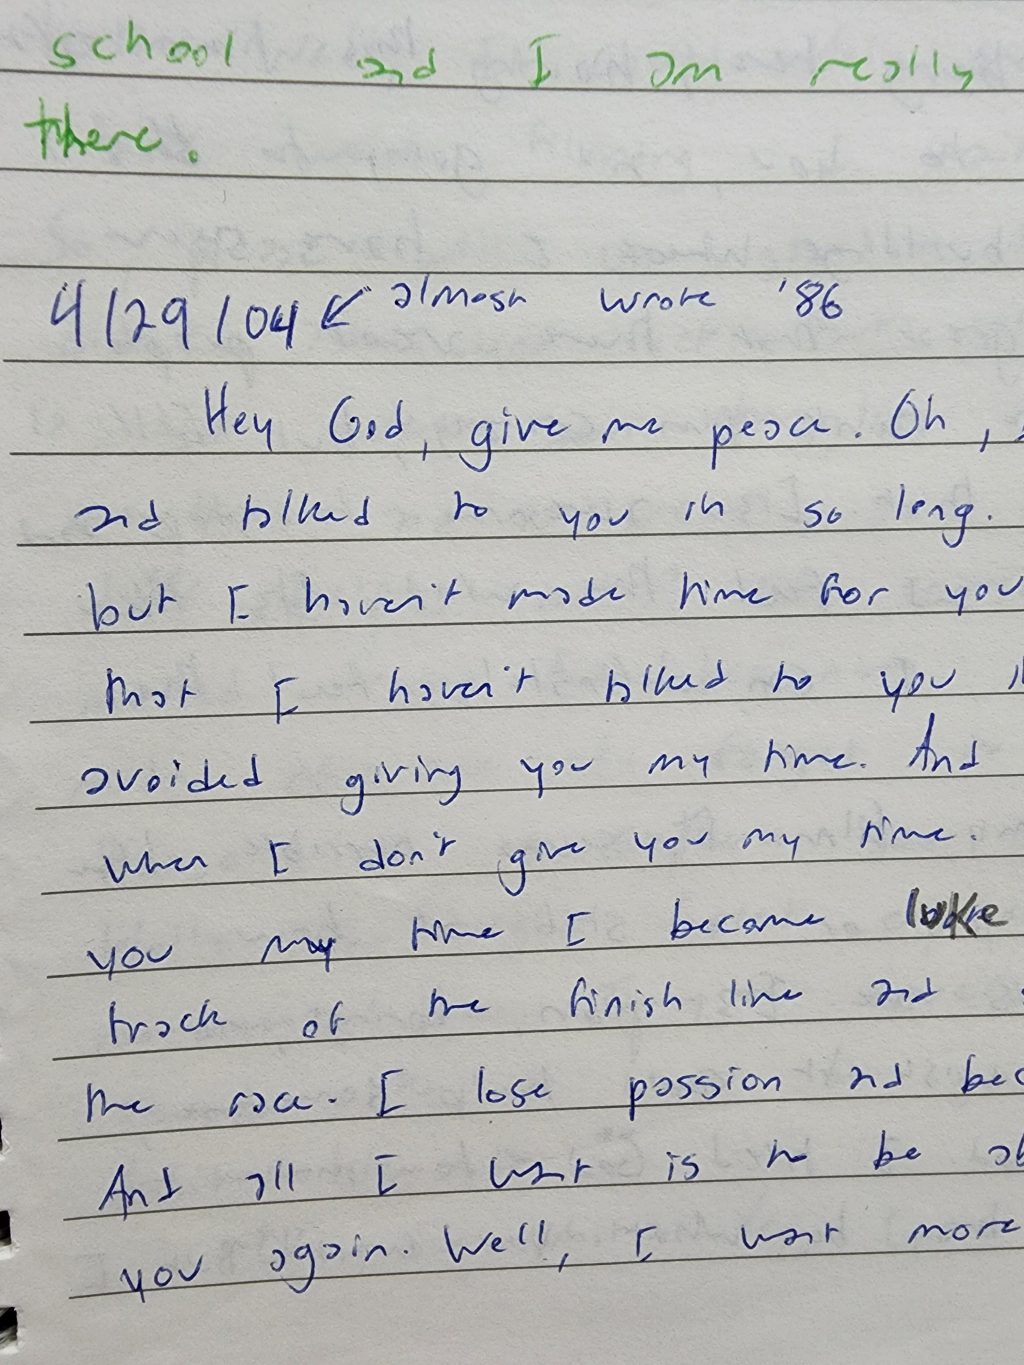 school and I am really
there.
4/29/04 ↙ almost wrote '86
Hey God, give me peace. Oh,
and talked to you in so long.
but I haven't made time for you
that I haven't talked to you
avoided giving you my time. And
when I don't give you my time.
you my time I become luke
track of the finish line and
the race. I lose passion and bec
And all I want is to be ab
you again. Well, I want more